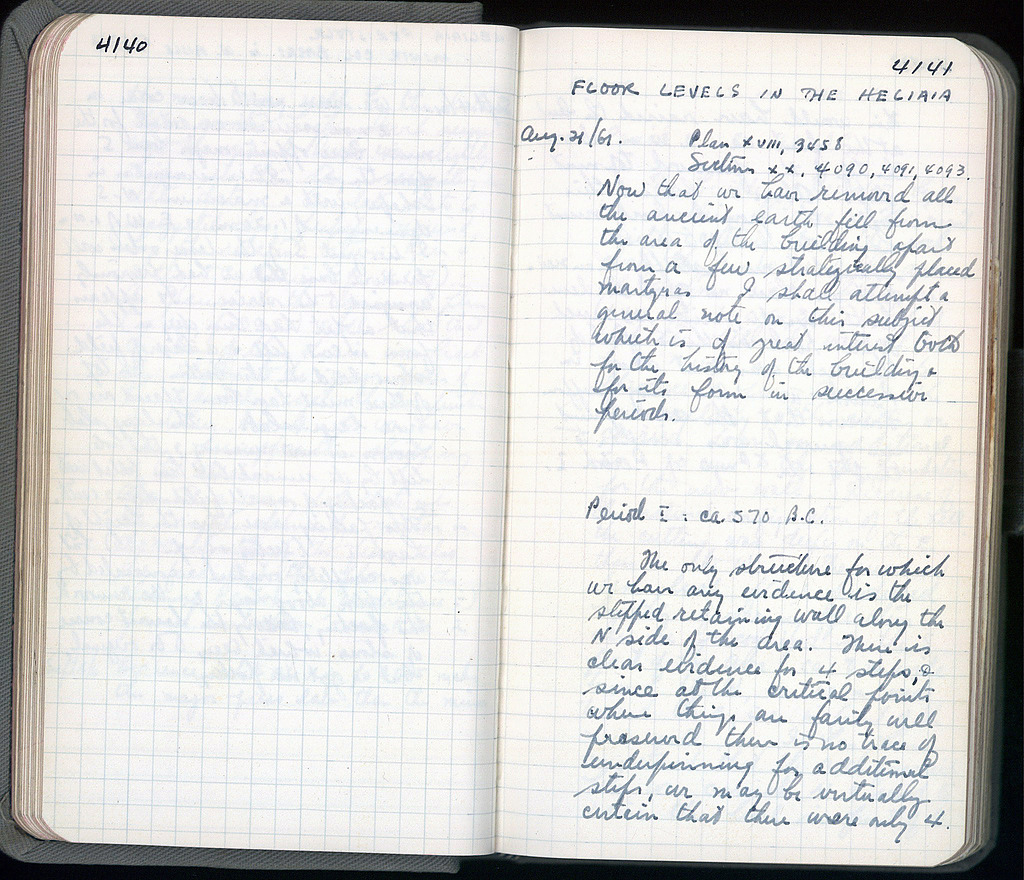 4140
4141
FLOOR LEVELS IN THE HELIAIA
Aug. 21/61. Plan XVIII, 3458
Sections XX, 4090, 4091, 4093.
Now that we have removed all
the ancient earth fill from
the area of the building apart
from a few strategically placed
martyras I shall attempt a
general note on this subject
which is of great interest both
for the history of the building &
for its form in successive
periods.
Period I : ca. 570 B.C.
The only structure for which
we have any evidence is the
stepped retaining wall along the
N side of the area. There is
clear evidence for 4 steps, &
since at the critical points
where things are fairly well
preserved there is no trace of
underpinning for additional
steps, we may be virtually
certain that there were only 4.